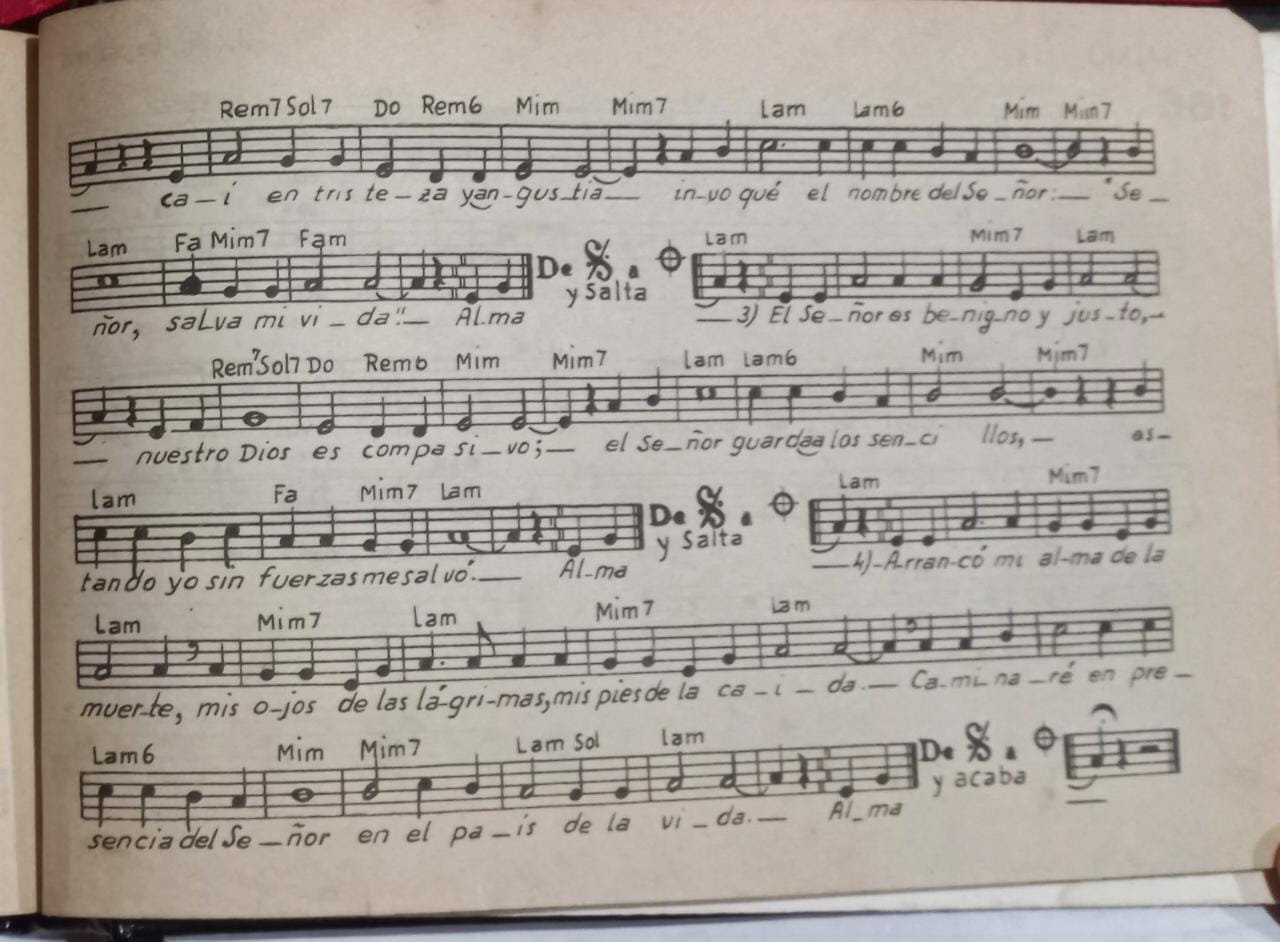 Rem7 Sol7 Do Rem6 Mim Mim7 Lam Lam6 Mim Mim7
ca_í en tris te_za yan-gus_tia__ in_vo qué el nombre del Se_ñor:__ "Se_
Lam Fa Mim7 Fam De a Lam Mim7 Lam
y Salta
ñor, salva mi vi_da"__ Al_ma __3) El Se_ñor es be_nig_no y jus_to,_
Rem7 Sol7 Do Rem6 Mim Mim7 Lam Lam6 Mim Mim7
__ nuestro Dios es compa si_vo;__ el Se_ñor guarda a los sen_ci llos,__ es_
Lam Fa Mim7 Lam De a Lam Mim7
y Salta
tando yo sin fuerzas me salvó.__ Al_ma __4)-Arran_có mi al-ma de la
Lam Mim7 Lam Mim7 Lam
muer_te, mis o_jos de las lá-gri-mas, mis pies de la ca_i_da.__ Ca_mi_na_ré en pre_
Lam6 Mim Mim7 Lam Sol Lam De a
y acaba
sencia del Se_ñor en el pa_ís de la vi_da.__ Al_ma